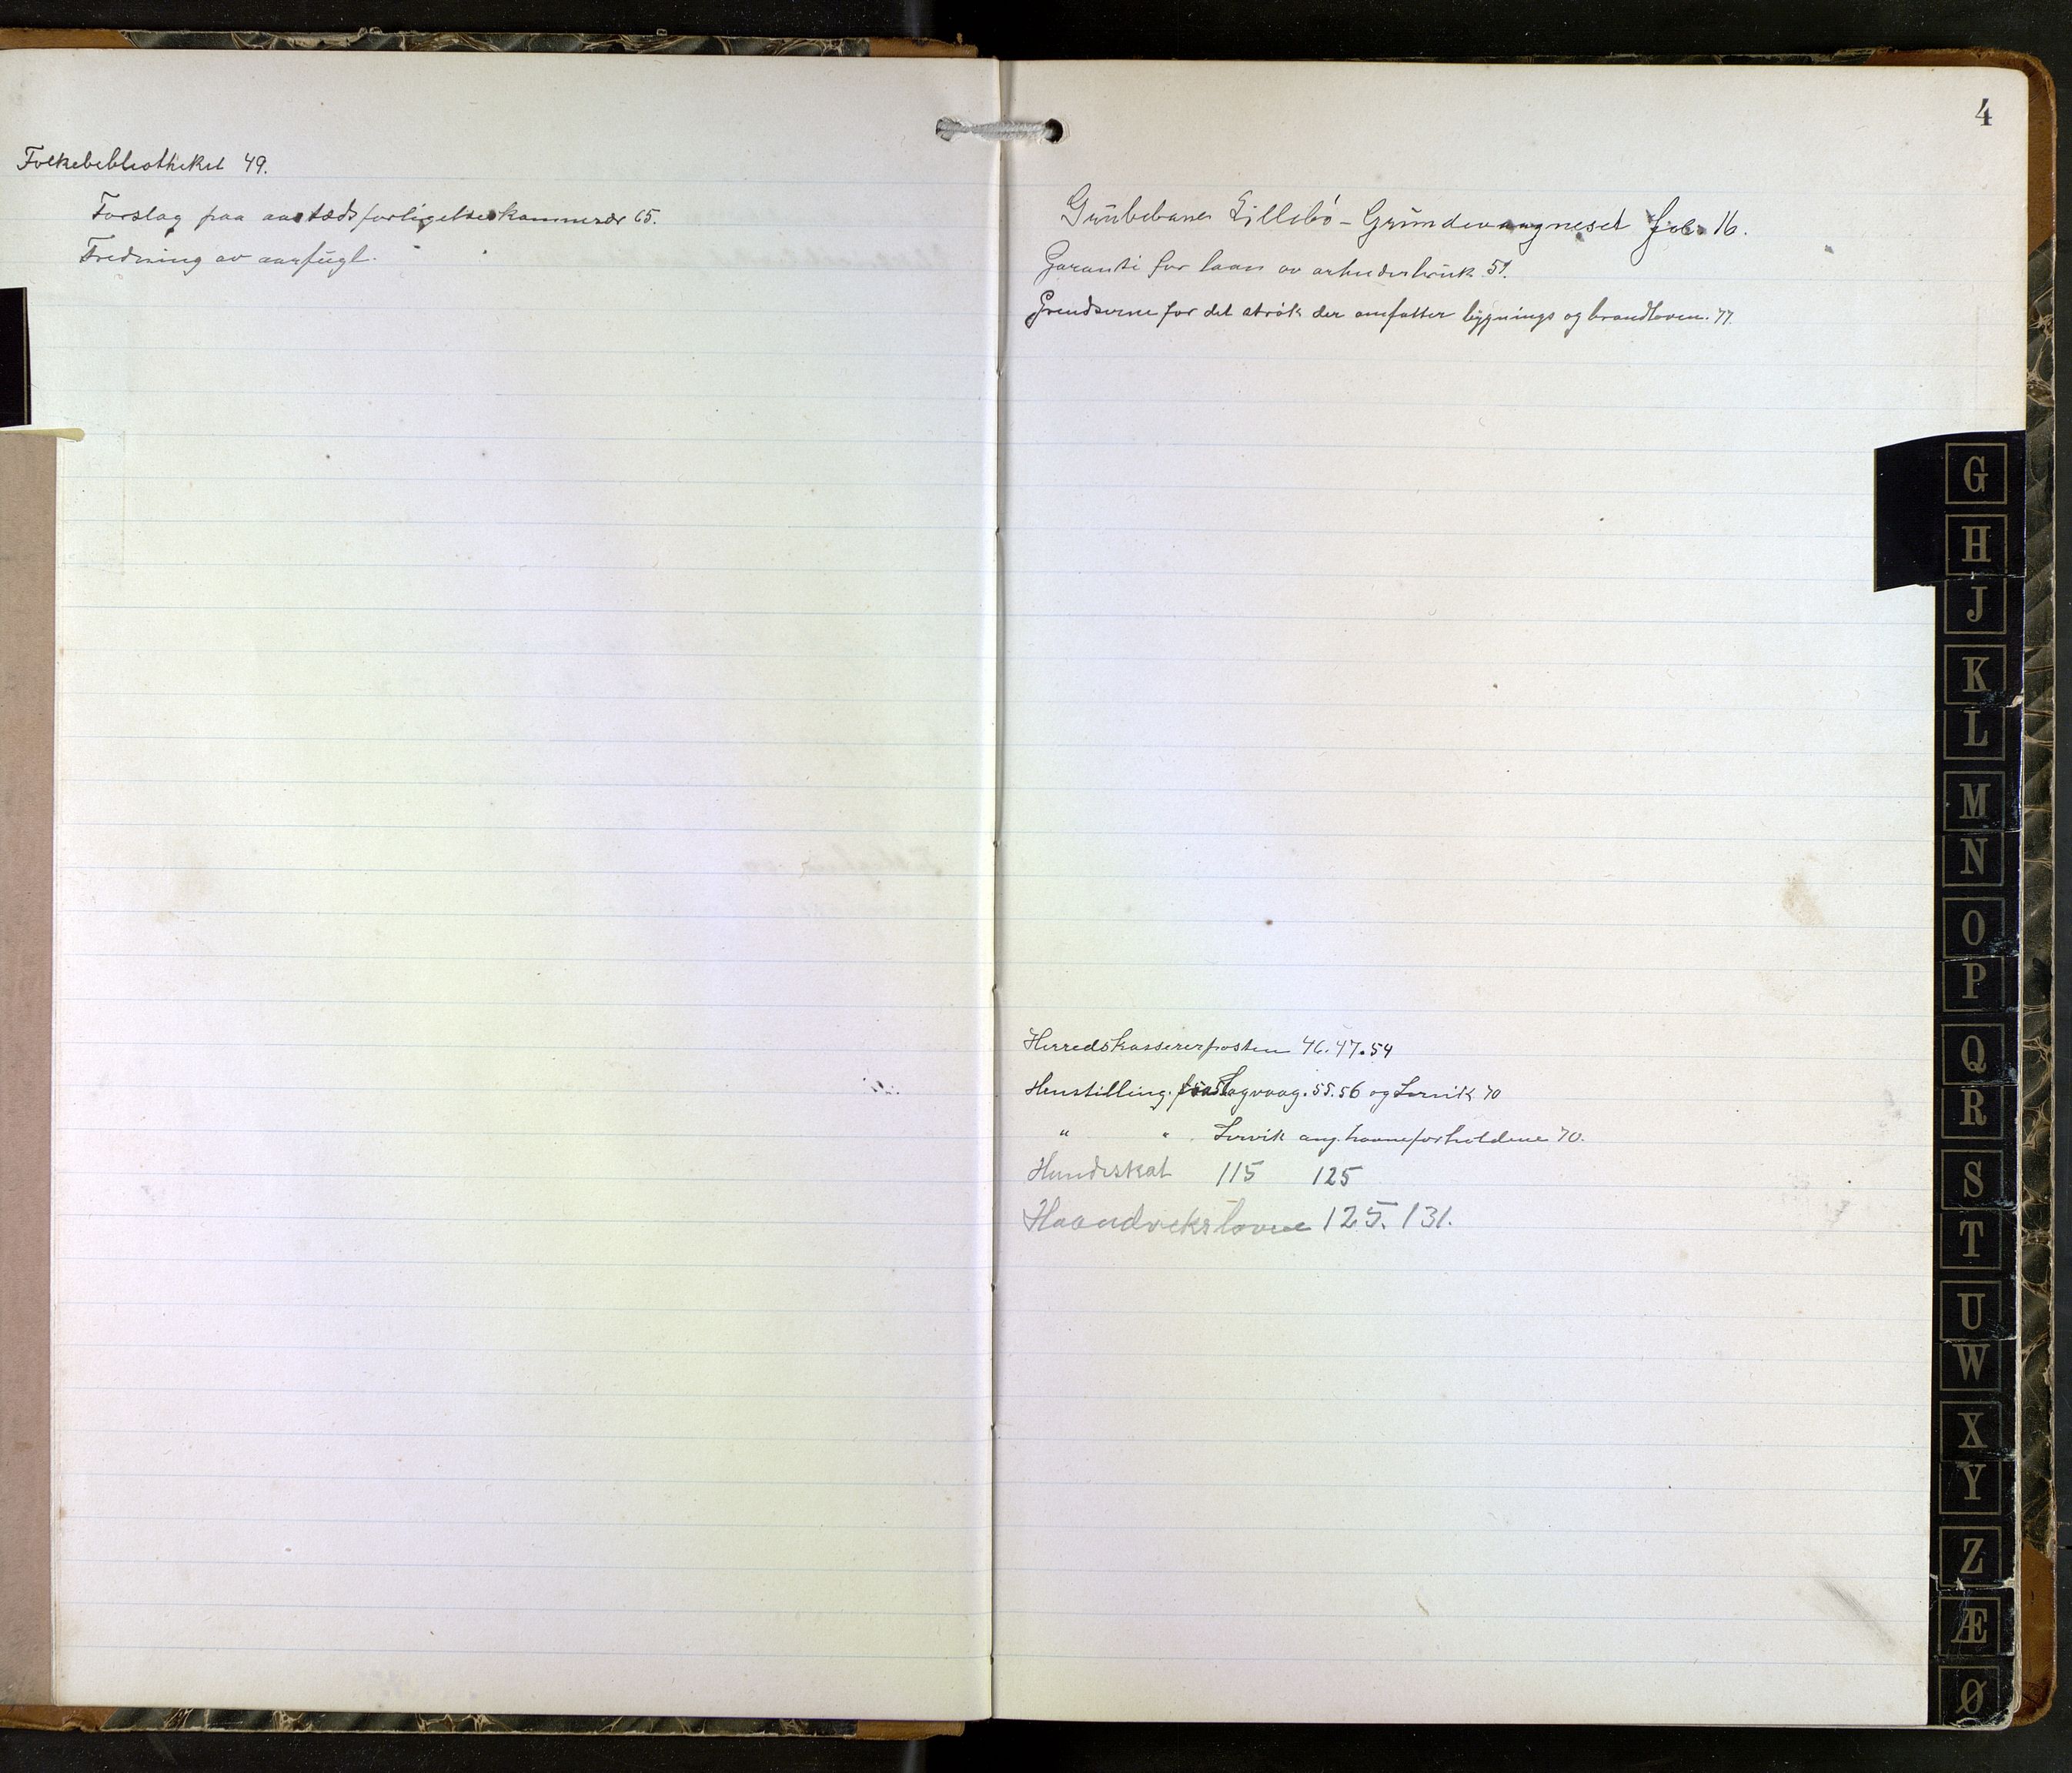 Folkebibliotheket 49.
Forslag paa aastædsforligelseskommisær 65.
Fredning av aarfugl.
4
Grubebanen Lillebö - Grunnevaagneset fol. 16.
Garanti for laan av arbeiderbruk 51.
Grendserne for det strök der omfatter bygnings og brandloven. 77.
Herredskassererposten 46. 47. 54
Henstilling. fra Sagvaag. 55. 56 og Lervik 70
" " Lervik ang. havneforholdene 70.
Hundeskat 115 125
Haandverksloven 125. 131.
G
H
J
K
L
M
N
O
P
Q
R
S
T
U
W
X
Y
Z
Æ
Ø